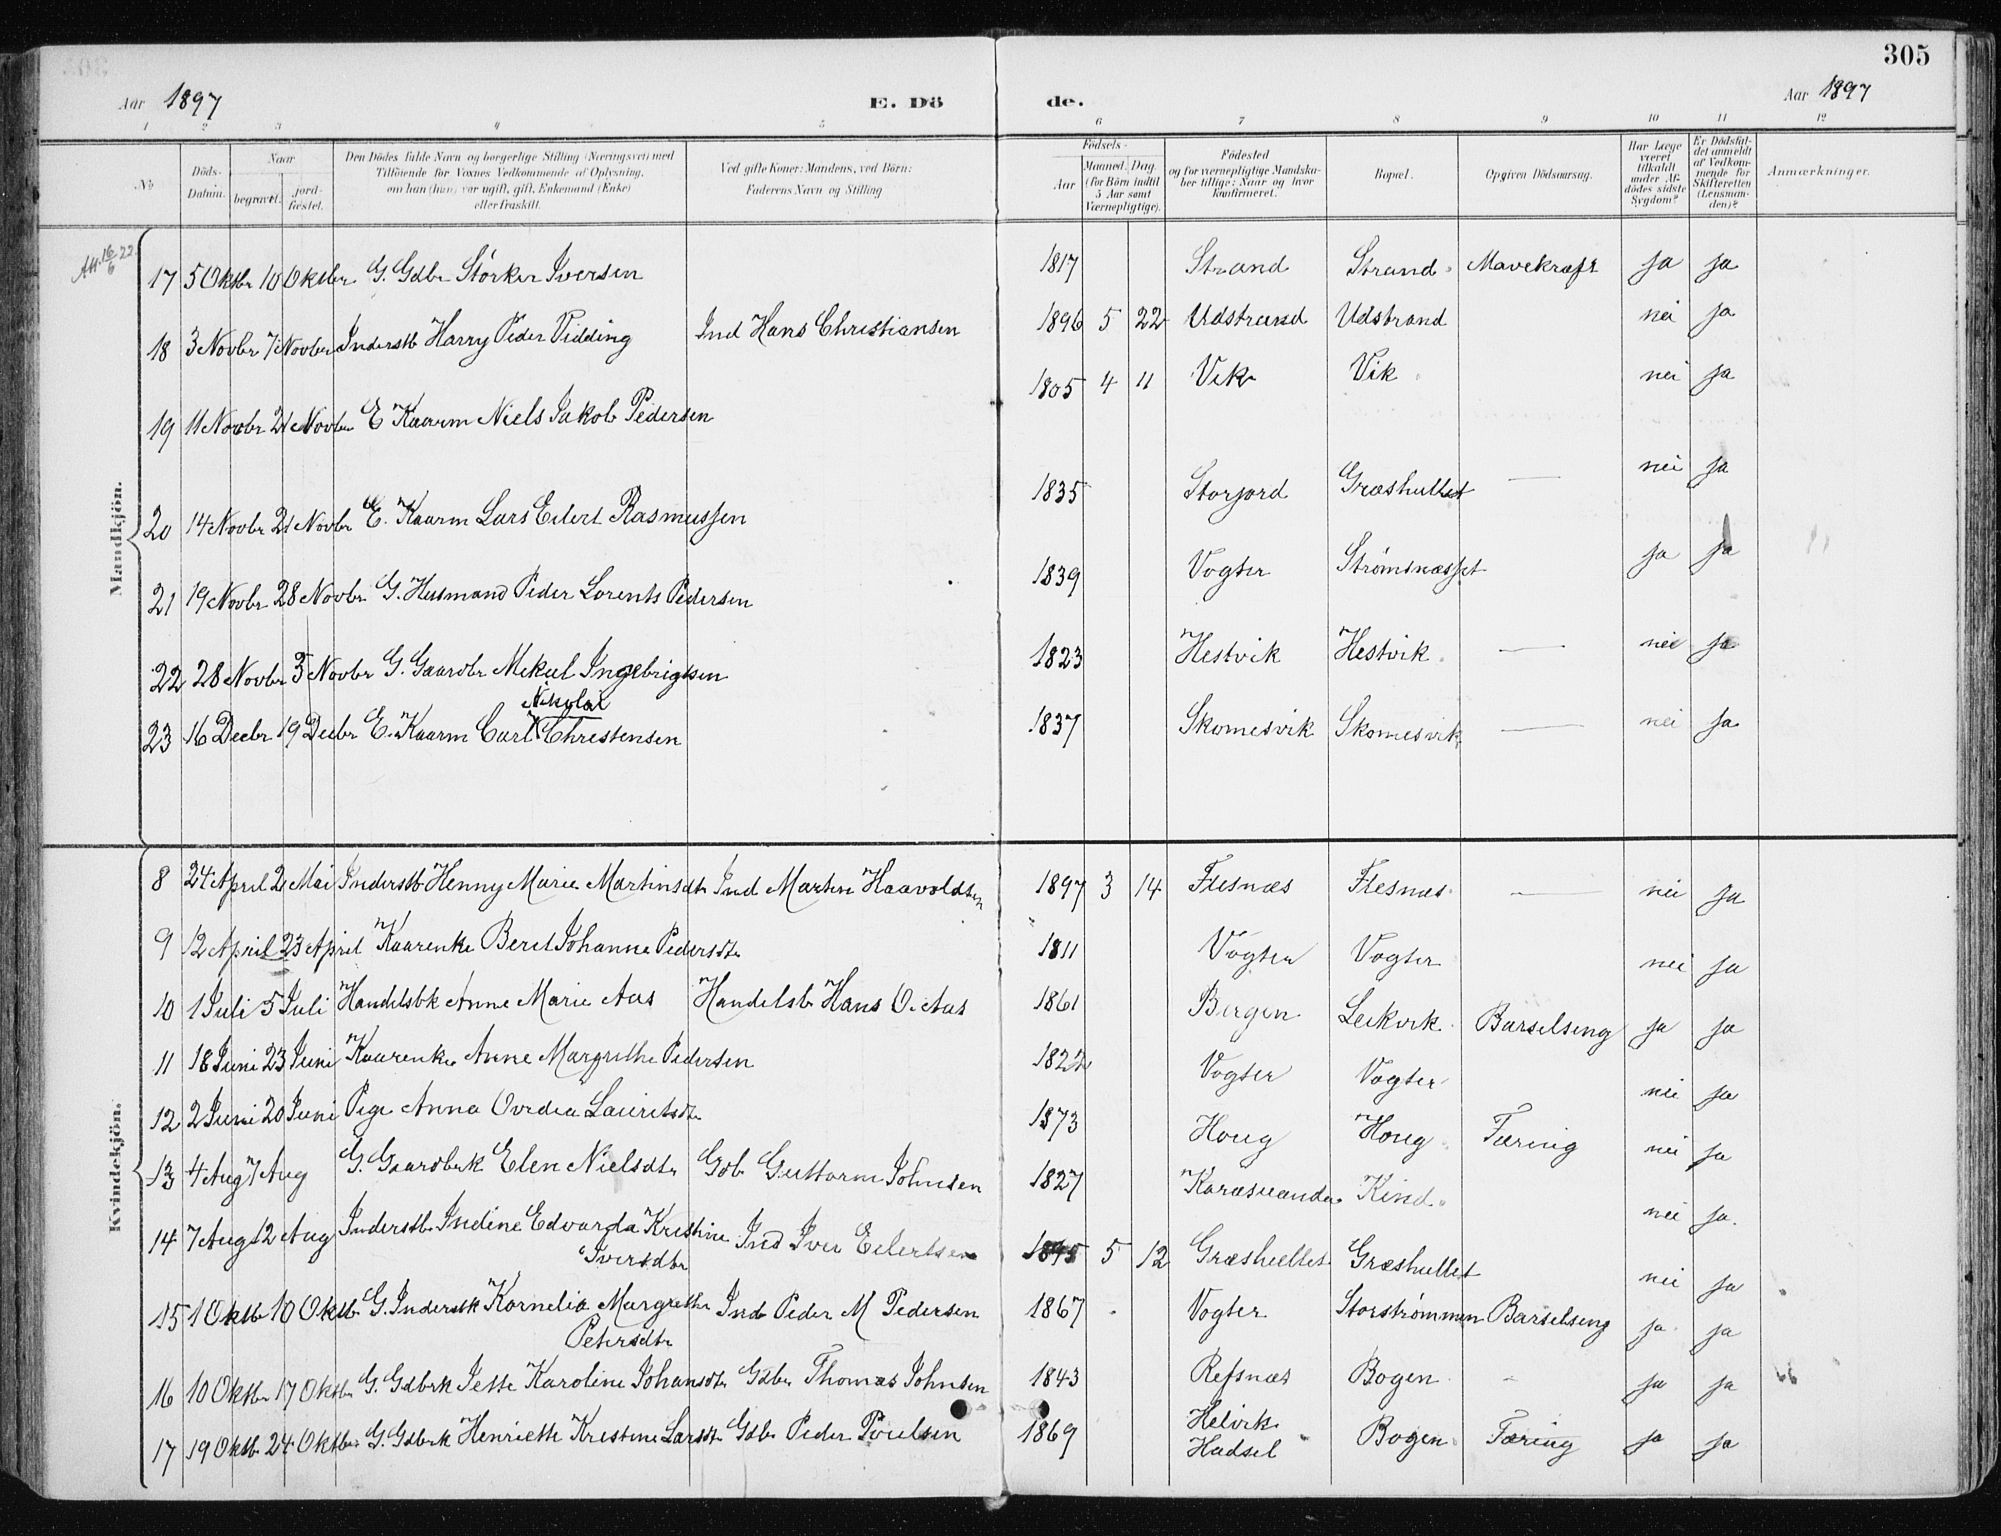 305
Aar 1897 E. Döde. Aar 1897
1 2 3 4 5 6 7 8 9 10 11 12
No Döds-Datum. Naar begravet. jordfæstet. Den Dödes fulde Navn og borgerlige Stilling (Næringsvei) med Tilföiende for Voxnes Vedkommende af Oplysning, om han (hun) var ugift, gift, Enkemand (Enke) eller fraskilt. Ved gifte Koner: Mandens, ved Börn: Faderens Navn og Stilling Födsels- Aar Maaned. Dag. (for Börn indtil 5 Aar samt Værnepligtige). Födested og for værnepligtige Mandskaber tillige: Naar og hvor konfirmeret. Bopæl. Opgiven Dödsaarsag. Har Læge været tilkaldt under Afdödes sidste Sygdom? Er Dödsfaldet anmeldt af Vedkommende for Skifteretten (Lensmanden)? Anmærkninger.
Att. 16/6 22
Mandkjön.
17 5 Oktbr 10 Oktbr G. Gdbr Størker Iversen 1817 Strand Strand Mavekræft ja ja
18 3 Novbr 7 Novbr Inderstb Harry Peder Vidding Ind Hans Christiansen 1896 5 22 Udstrand Udstrand nei ja
19 11 Novbr 21 Novbr E Kaarm Niels Jakob Pedersen 1805 4 11 Vik Vik nei ja
20 14 Novbr 21 Novbr E. Kaarm Lars Eilert Rasmussen 1835 Storjord Græshullet — nei ja
21 19 Novbr 28 Novbr G. Husmand Peder Lorents Pedersen 1839 Vogter Strømsnæsset ja ja
22 28 Novbr 5 Novbr G. Gaardbr Mikal Ingebrigtsen 1823 Hestvik Hestvik — nei ja
Nikolai
23 16 Decbr 19 Decbr E. Kaarm Carl Christensen 1837 Skomesvik Skomesvik — nei ja
Kvindekjön.
8 24 April 2 Mai Inderstb Henny Marie Martinsdtr Ind Martin Haavoldsen 1897 3 14 Flesnæs Flesnæs — nei ja
9 12 April 23 April Kaarenke Beret Johanna Pedersdtr 1811 Vogter Vogter nei ja
10 1 Juli 5 Juli Handelsbk Anne Marie Aas Handelsb Hans O. Aas 1861 Bergen Leikvik Barselseng ja ja
11 18 Juni 23 Juni Kaarenke Anne Margrethe Pedersen 1822 Vogter Vogter nei ja
12 2 Juni 20 Juni Pige Anna Ovedia Lauritsdtr 1873 Houg Houg Tæring nei ja
13 4 Aug 7 Aug G. Gaardbrk Elen Nielsdtr Gdb Guttorm Johnsen 1827 Karasuando Kind nei ja.
14 7 Aug 12 Aug Inderstb Indine Edvarda Kristine Ind Iver Eilertsen 5 12 Græshullet Græshullet nei ja
Iversdtr
15 1 Oktb 10 Oktb G. Inderstk Kornelia Margrethe Ind Peder M Pedersen 1867 Vogter Storstrømmen Barselseng ja ja
Petersdtr
16 10 Oktbr 17 Oktbr G. Gdbrk Jette Karoline Johansdtr Gdbr Thomas Johnsen 1843 Refsnæs Bogen - ja ja
17 19 Oktb 24 Oktbr G. Gdbrk Henriette Kristine Larsdtr Gdb Peder Poulsen 1869 Helvik Hadsel Bogen Tæring ja ja